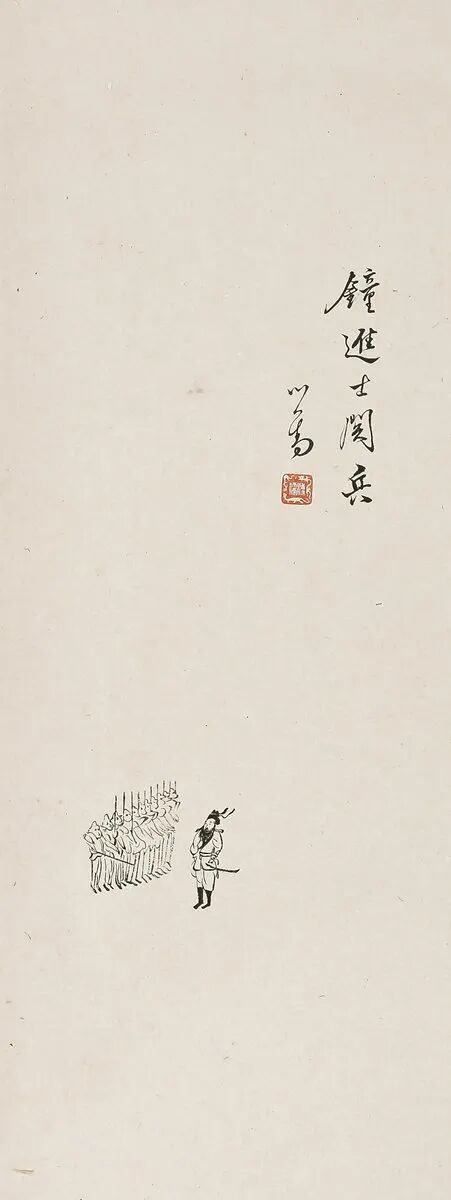 鐘進士閱兵
心畬